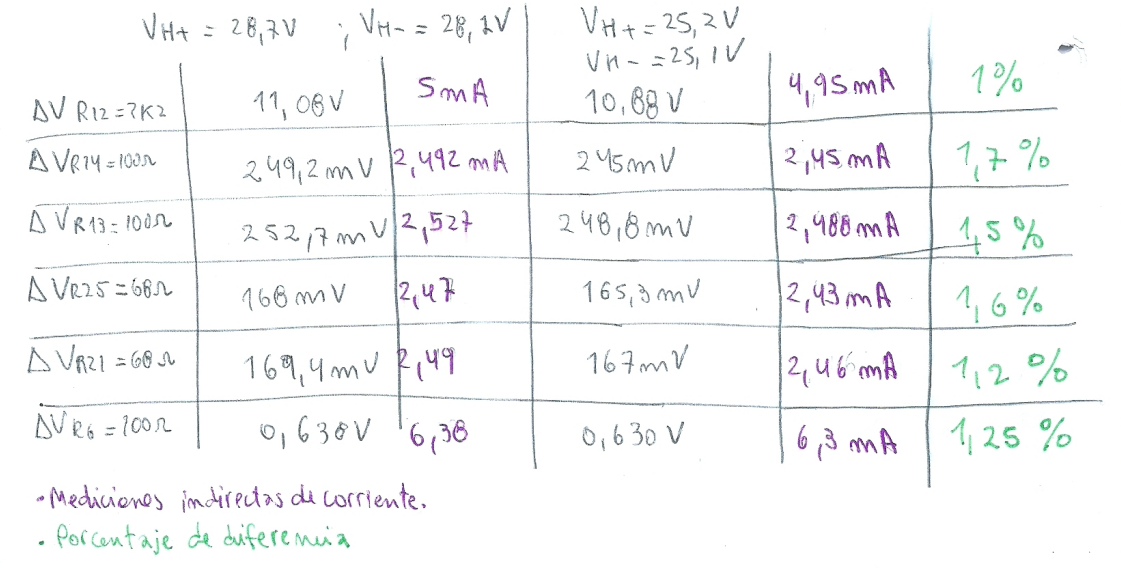 VH+ = 28,7V ; VH- = 28,1V VH+ = 25,2V
VH- = 25,1V
ΔV R12=2K2 11,08V 5mA 10,88V 4,95mA 1%
ΔVR14=100Ω 249,2mV 2,492mA 245mV 2,45mA 1,7%
ΔVR13=100Ω 252,7mV 2,527 248,8mV 2,488mA 1,5%
ΔVR25=68Ω 168mV 2,47 165,3mV 2,43mA 1,6%
ΔVR21=68Ω 169,4mV 2,49 167mV 2,46mA 1,2%
ΔVR6=100Ω 0,638V 6,38 0,630V 6,3mA 1,25%
·Mediciones indirectas de corriente.
·Porcentaje de diferencia